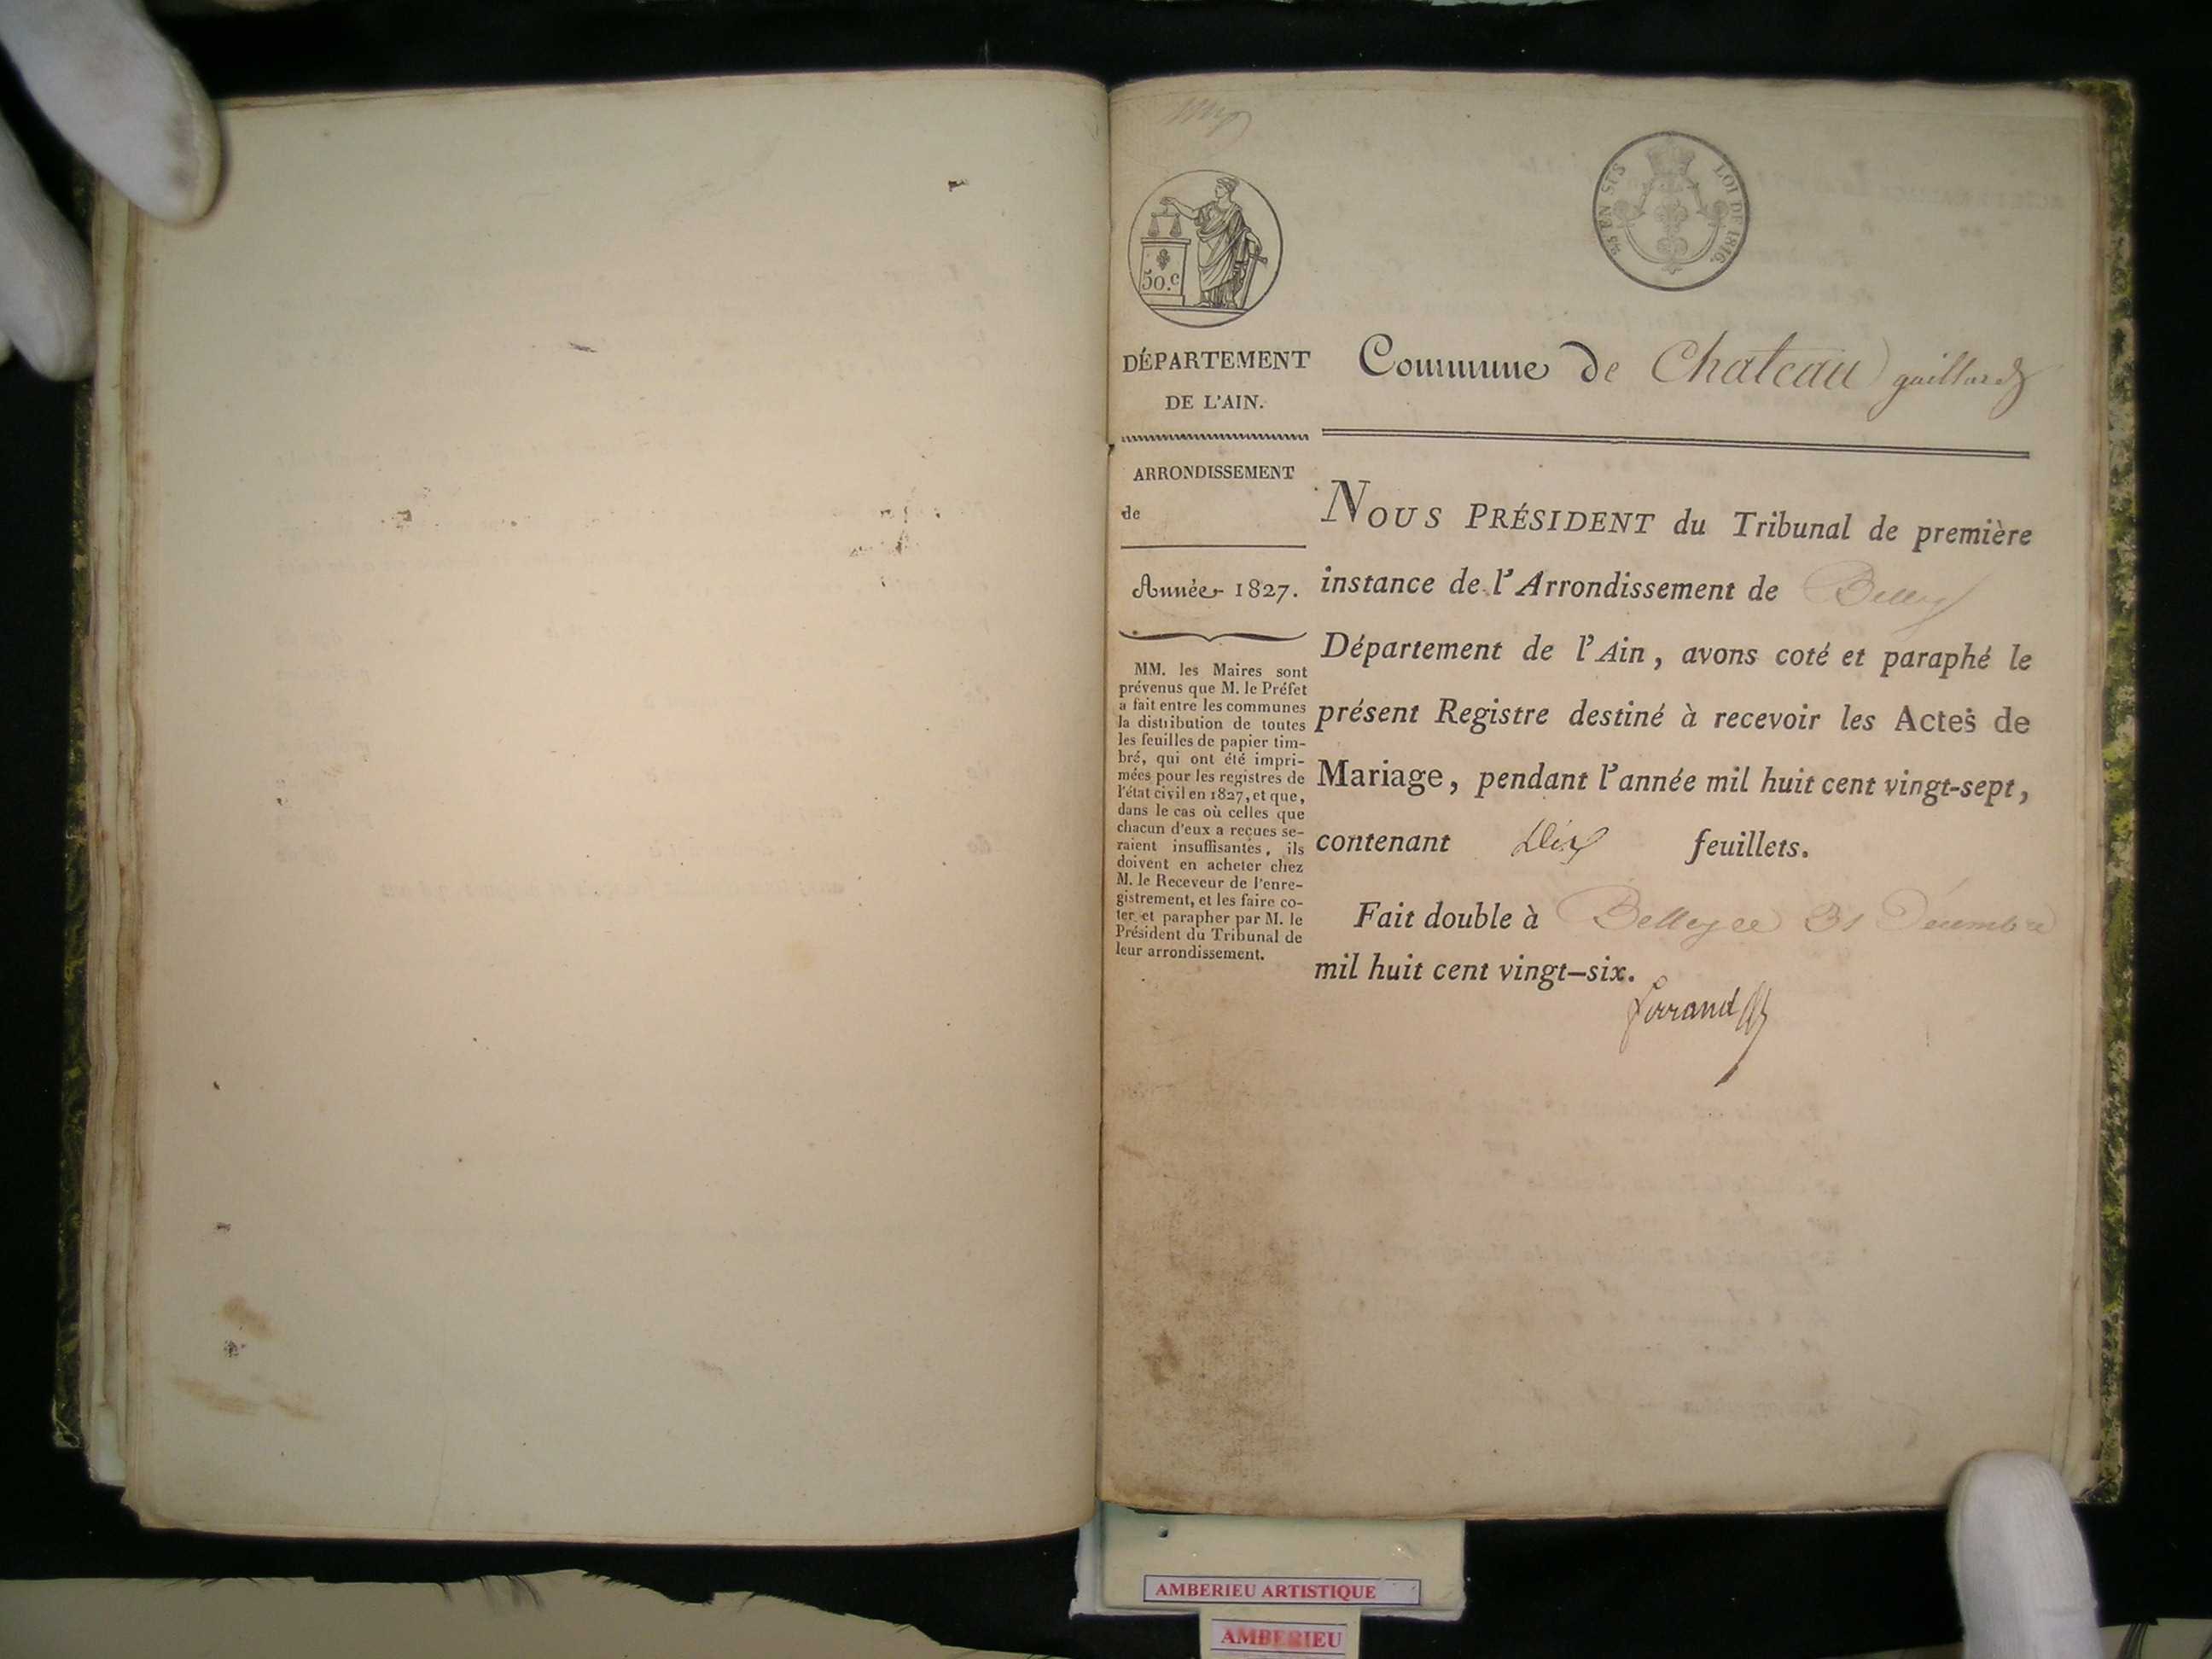 50.c
25 EN SUS
LOI DE 1816.
DÉPARTEMENT
DE L'AIN.
Commune de Chateau gaillard
ARRONDISSEMENT
de
Année 1827.
MM. les Maires sont
prévenus que M. le Préfet
a fait entre les communes
la distribution de toutes
les feuilles de papier tim-
bré, qui ont été impri-
mées pour les registres de
l'état civil en 1827, et que,
dans le cas où celles que
chacun d'eux a reçues se-
raient insuffisantes, ils
doivent en acheter chez
M. le Receveur de l'enre-
gistrement, et les faire co-
ter et parapher par M. le
Président du Tribunal de
leur arrondissement.
NOUS PRÉSIDENT du Tribunal de première
instance de l'Arrondissement de Belley
Département de l'Ain, avons coté et paraphé le
présent Registre destiné à recevoir les Actes de
Mariage, pendant l'année mil huit cent vingt-sept,
contenant Dix feuillets.
Fait double à Belley ce 31 Décembre
mil huit cent vingt-six.
AMBERIEU ARTISTIQUE
AMBERIEU